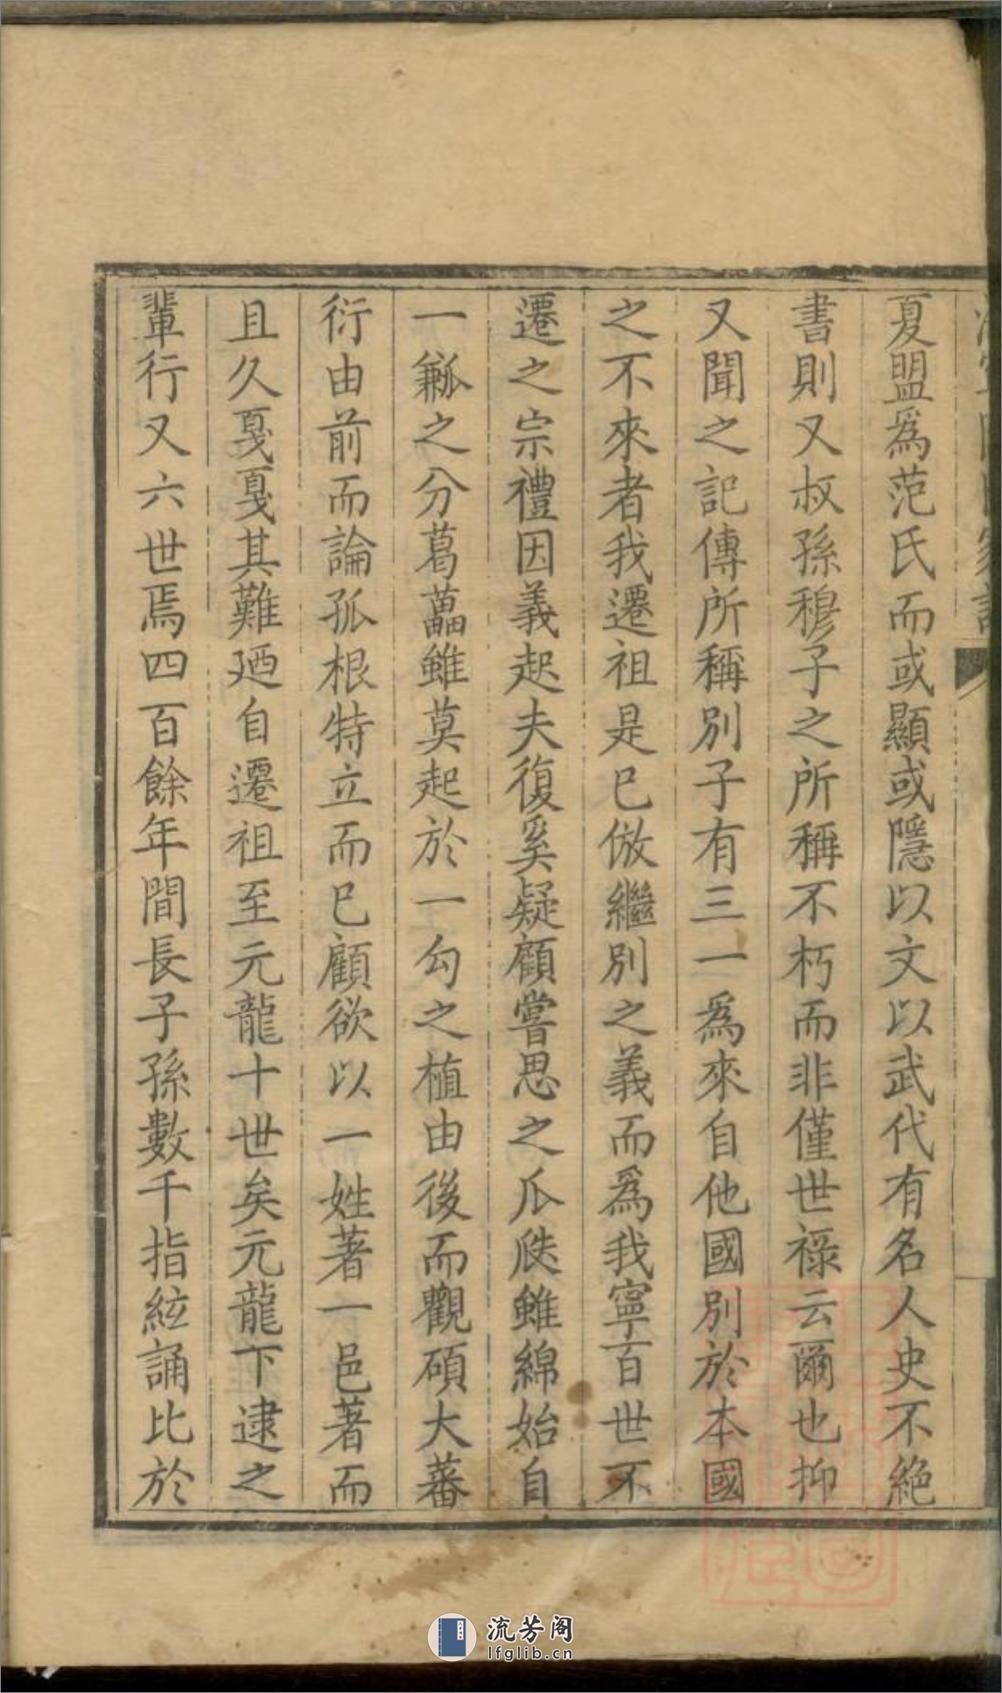 夏盟爲范氏而或顯或隱以文以武代有名人史不絶
書則又叔孫穆子之所稱不朽而非僅世祿云爾也抑
又聞之記傳所稱別子有三一爲來自他國別於本國
之不來者我遷祖是已倣繼別之義而爲我寧百世不
遷之宗禮因義起夫復奚疑顧嘗思之瓜瓞雖綿始自
一觚之分葛藟雖莫起於一勾之植由後而觀碩大蕃
衍由前而論孤根特立而已顧欲以一姓著一邑著而
且久戛戛其難廼自遷祖至元龍十世矣元龍下逮之
輩行又六世焉四百餘年間長子孫數千指絃誦比於
流芳阁
lfglib.cn